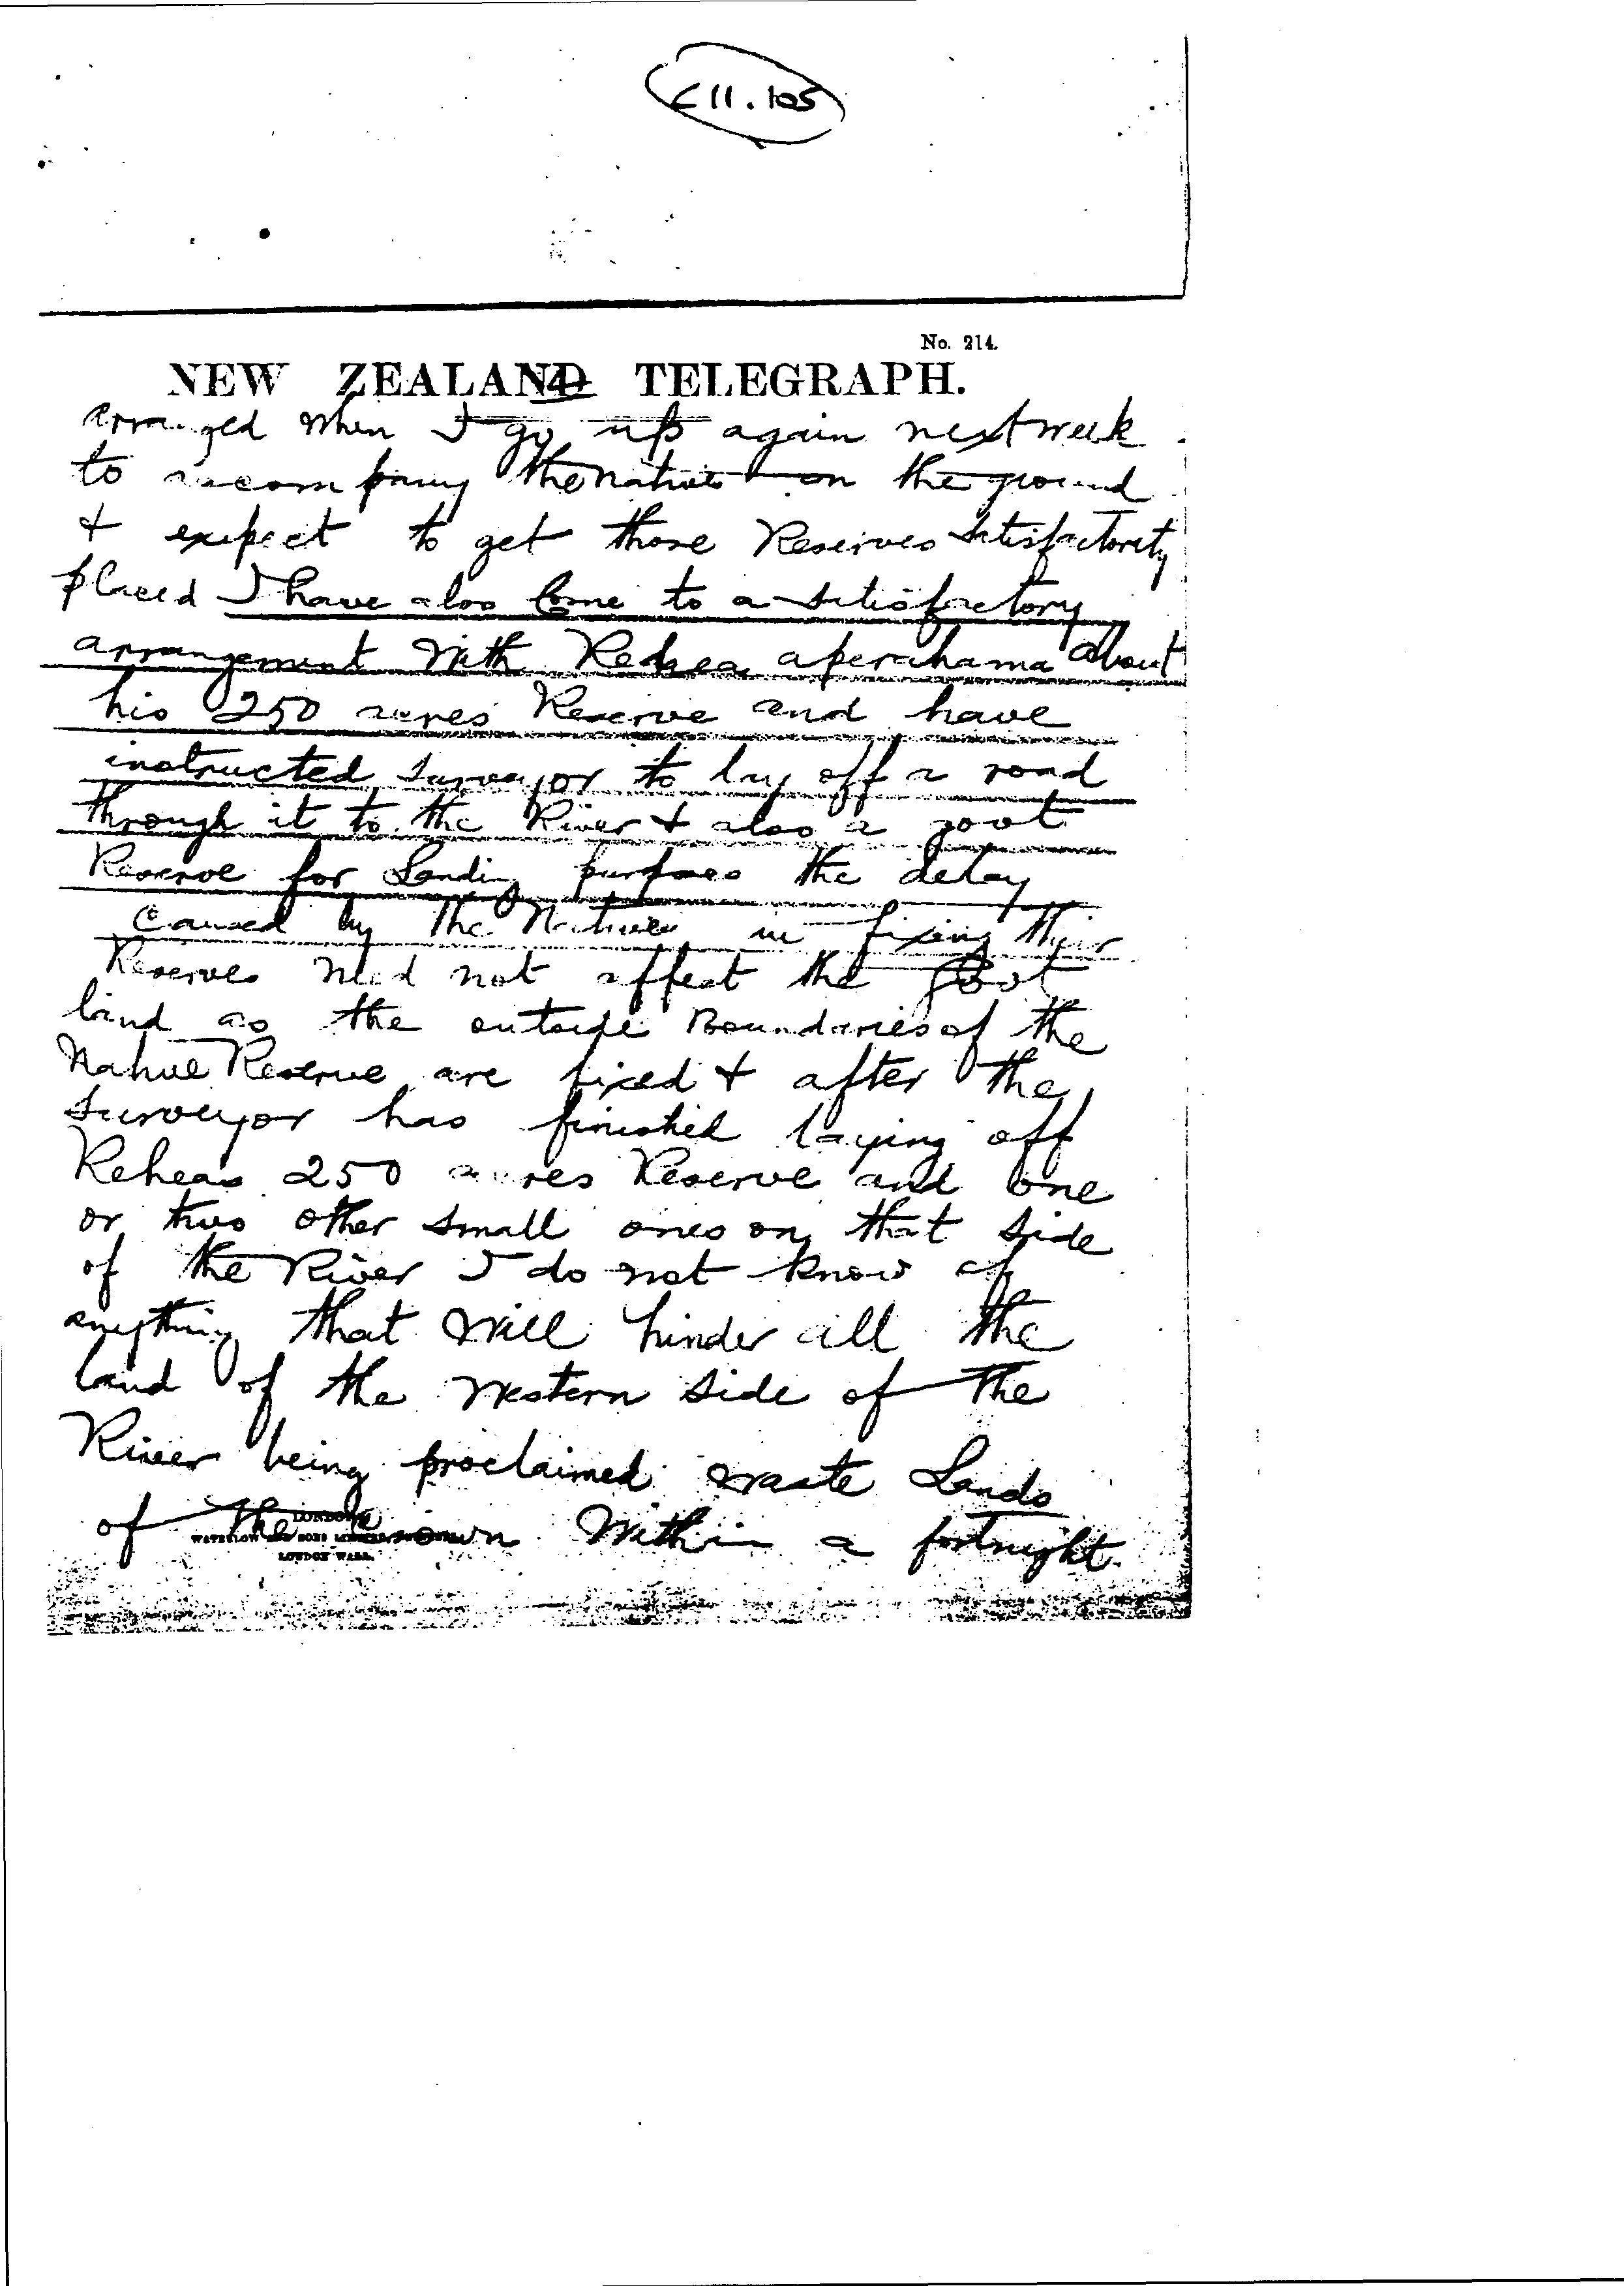 E11.105
No. 214.
NEW ZEALAND TELEGRAPH.
arranged when I go up again next week
to accompany the natives on the ground
& expect to get those Reserves satisfactorily
placed I have also come to a satisfactory
arrangement with Rehea aperahama about
his 250 acres Reserve and have
instructed surveyor to lay off a road
through it to the River & also a govt
Reserve for Landing purposes the delay
caused by the Natives in fixing their
Reserves need not affect the Govt
land as the outside Boundaries of the
Native Reserve are fixed & after the
Surveyor has finished laying off
Reheas 250 acres Reserve and one
or two other small ones on that side
of the River I do not know of
anything that will hinder all the
land of the western side of the
River being proclaimed waste Lands
of the Crown within a fortnight.
LONDON
WATERLOW AND SONS
LONDON WALL.